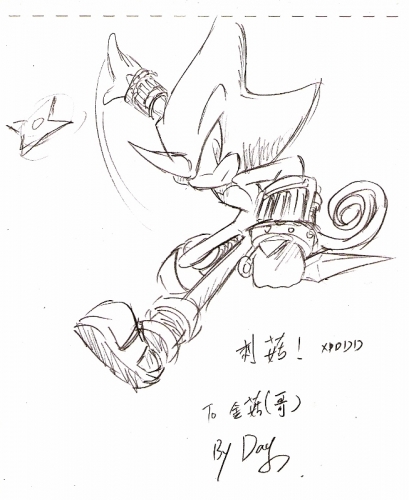 刺菇! XDDDD
To 金菇(哥)
By Day